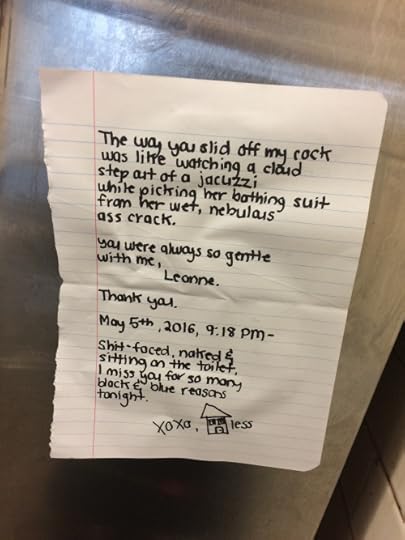 The way you slid off my cock
was like watching a cloud
step out of a jacuzzi
while picking her bathing suit
from her wet, nebulous
ass crack.
you were always so gentle
with me,
Leanne.
Thank you.
May 5th, 2016, 9:18 pm-
Shit-faced, naked &
sitting on the toilet.
I miss you for so many
black & blue reasons
tonight.
xoxo, less